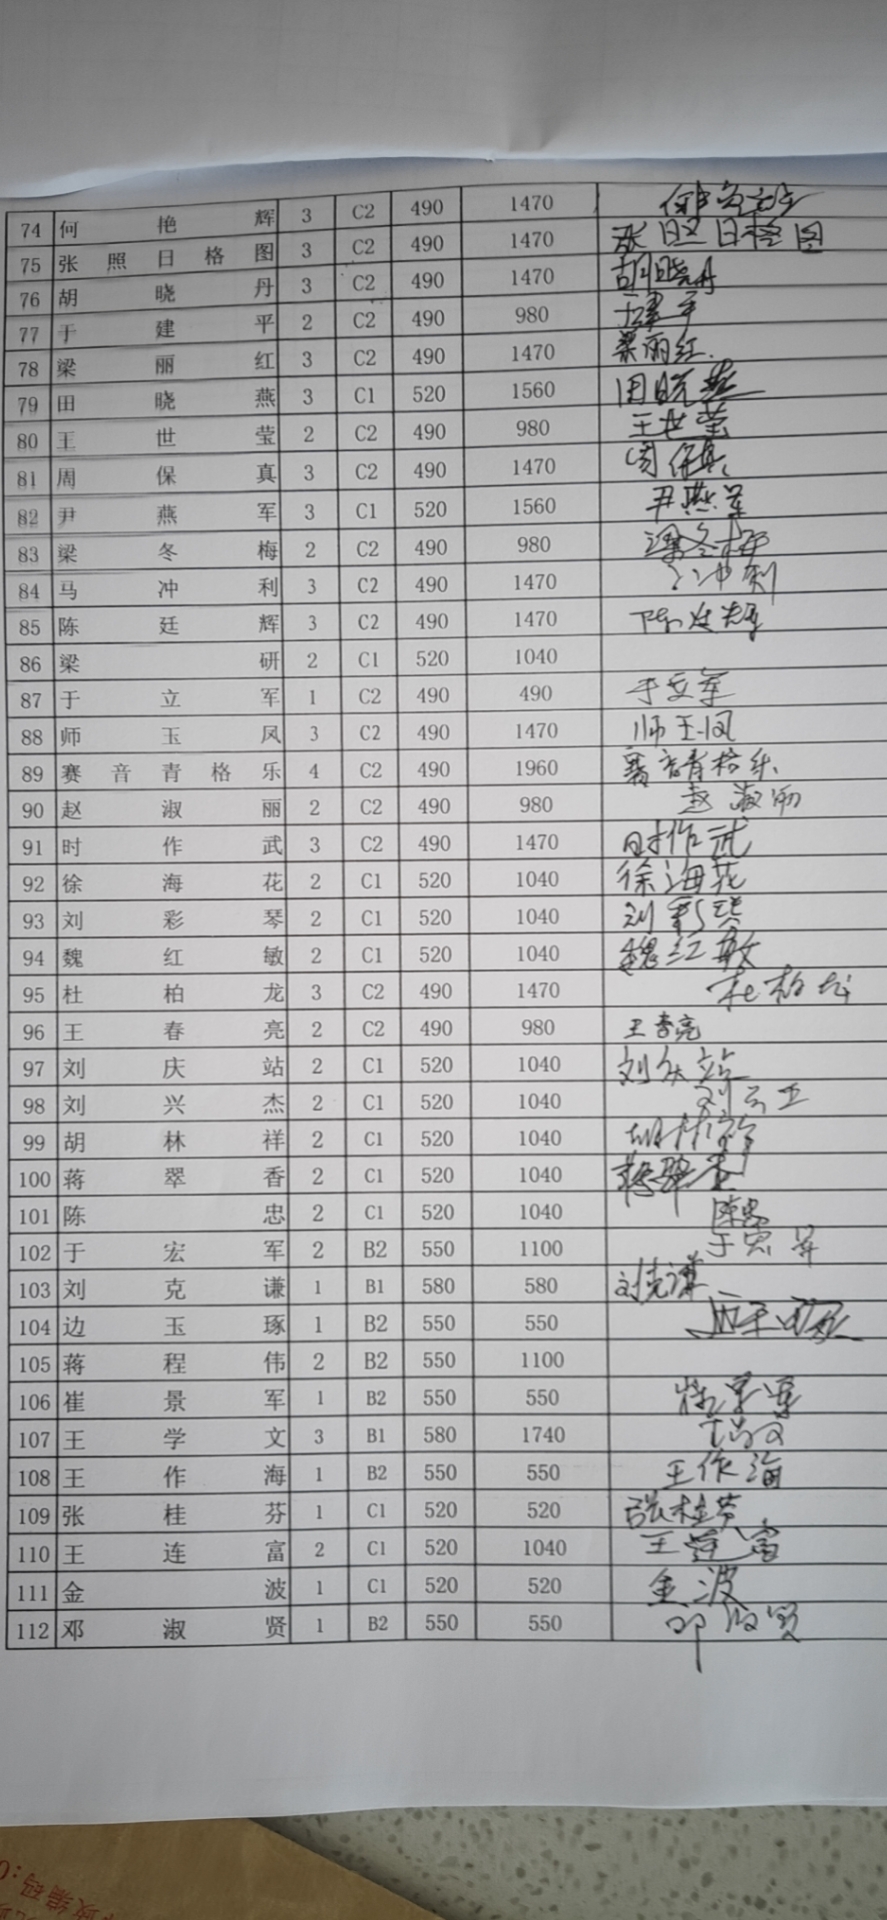 74 何艳辉 3 C2 490 1470
75 张照日格图 3 C2 490 1470 张照日格图
76 胡晓丹 3 C2 490 1470 胡晓丹
77 于建平 2 C2 490 980 于建平
78 梁丽红 3 C2 490 1470 梁丽红
79 田晓燕 3 C1 520 1560 田晓燕
80 王世莹 2 C2 490 980 王世莹
81 周保真 3 C2 490 1470 周保真
82 尹燕军 3 C1 520 1560 尹燕军
83 梁冬梅 2 C2 490 980 梁冬梅
84 马冲利 3 C2 490 1470 冲利
85 陈廷辉 3 C2 490 1470 陈廷辉
86 梁研 2 C1 520 1040
87 于立军 1 C2 490 490 于立军
88 师玉凤 3 C2 490 1470 师玉凤
89 赛音青格乐 4 C2 490 1960 赛音青格乐
90 赵淑丽 2 C2 490 980 赵淑丽
91 时作武 3 C2 490 1470 时作武
92 徐海花 2 C1 520 1040 徐海花
93 刘彩琴 2 C1 520 1040 刘彩琴
94 魏红敏 2 C1 520 1040 魏红敏
95 杜柏龙 3 C2 490 1470 杜柏龙
96 王春亮 2 C2 490 980 王春亮
97 刘庆站 2 C1 520 1040 刘庆站
98 刘兴杰 2 C1 520 1040 刘
99 胡林祥 2 C1 520 1040 胡林祥
100 蒋翠香 2 C1 520 1040 蒋翠香
101 陈忠 2 C1 520 1040 陈忠
102 于宏军 2 B2 550 1100 于宏军
103 刘克谦 1 B1 580 580 刘克谦
104 边玉琢 1 B2 550 550
105 蒋程伟 2 B2 550 1100
106 崔景军 1 B2 550 550 崔景军
107 王学文 3 B1 580 1740 王学文
108 王作海 1 B2 550 550 王作海
109 张桂芬 1 C1 520 520 张桂芬
110 王连富 2 C1 520 1040 王连富
111 金波 1 C1 520 520 金波
112 邓淑贤 1 B2 550 550 邓淑贤
政编码:0